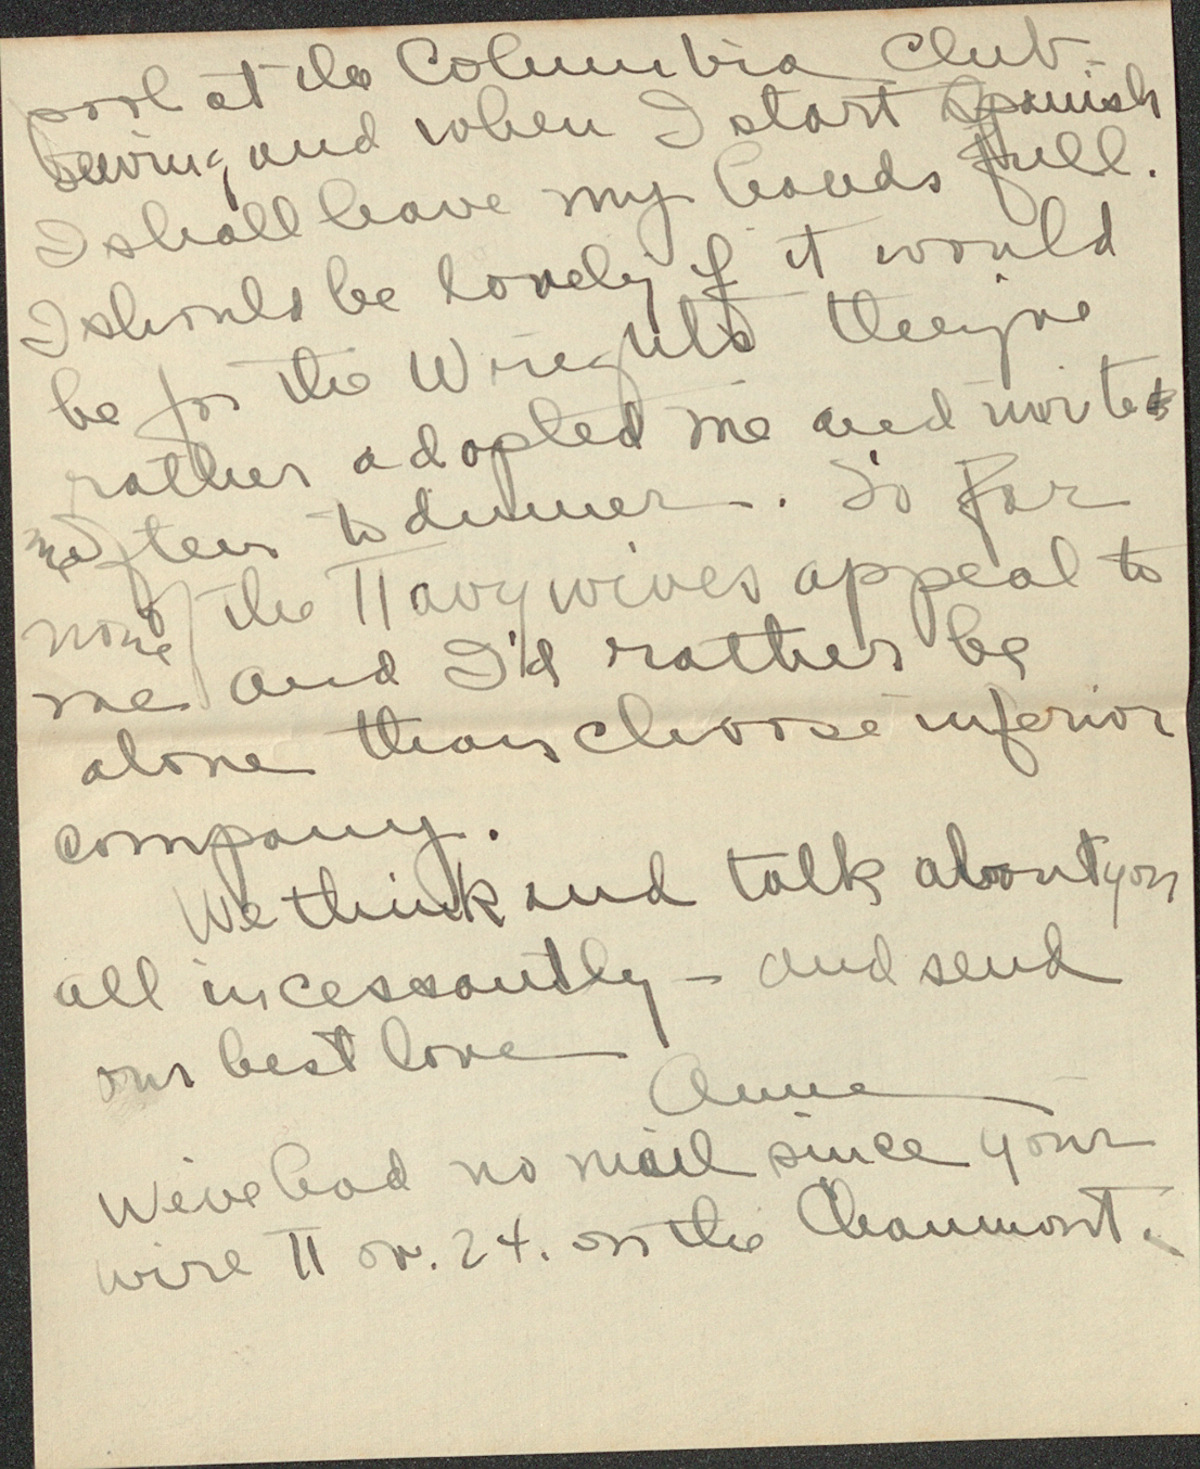 pool at the Columbia Club.
Sewing, and when I start Spanish
I shall have my hands full.
I should be lonely if it would
be for the Wrights they've
rather adopted me and invited
me often to dinner. So far
none of the Navy wives appeal to
me and I'd rather be
alone than choose inferior
company.
We think and talk about you
all incessantly - and send
our best love
Anne
We've had no mail since your
wire Nov. 24. on the Chaumont.